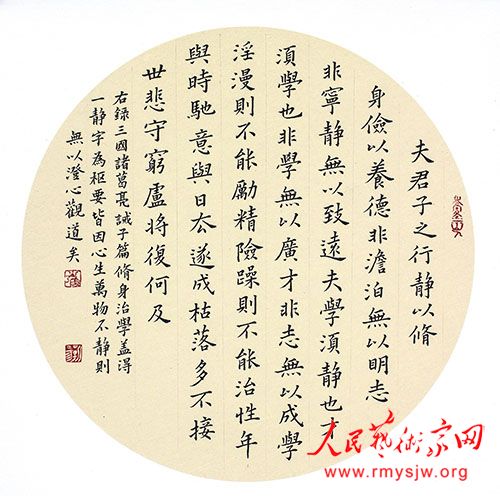 夫君子之行静以脩
身儉以養德非澹泊無以明志
非寧静無以致遠夫學須静也才
須學也非學無以廣才非志無以成學
淫漫則不能勵精險躁則不能治性年
與時馳意與日厺遂成枯落多不接
世悲守窮廬將復何及
右録三國諸葛亮誡子篇脩身治學蓋得
一静字為枢要皆因心生萬物不静則
無以澄心觀道矣
人民藝術家网
www.rmysjw.org